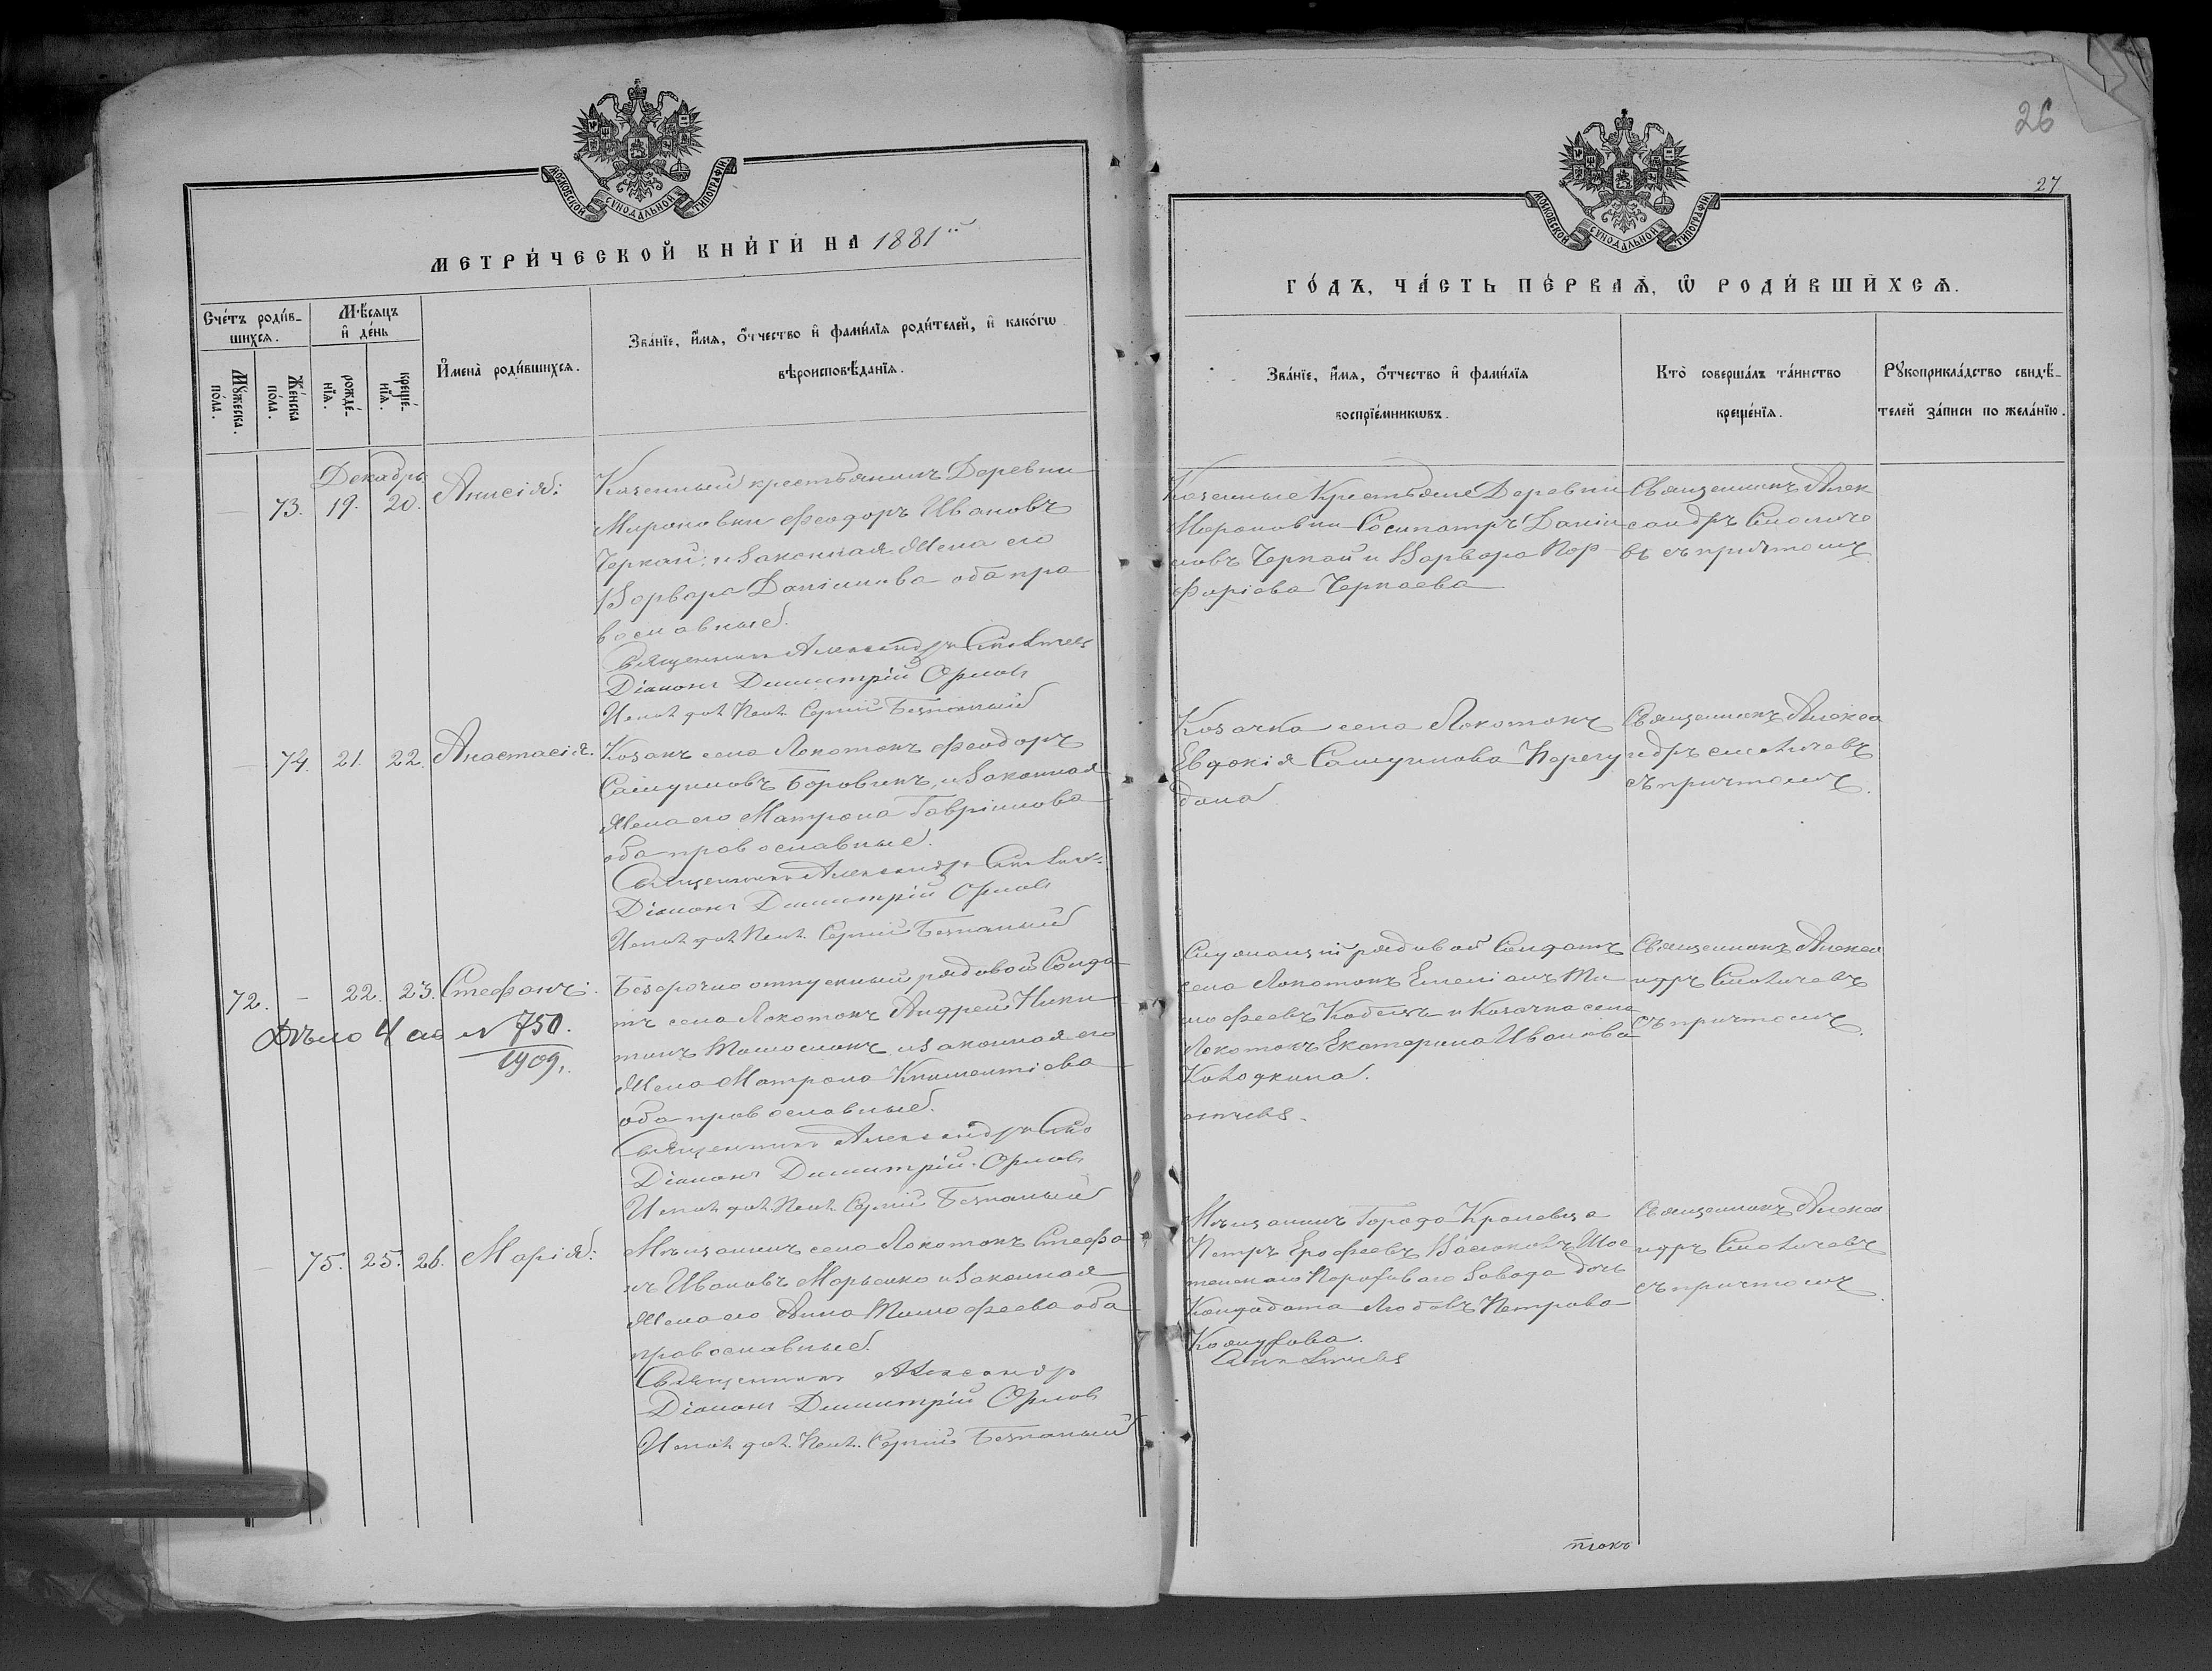 МОСКОВСКОЙ СУНОДАЛЬНОЙ ТИПОГРАФІИ.
МЕТРИ́ЧЕСКОЙ КНИ́ГИ НА 1881й
Сче́тъ роди́в-
шихсѧ.
Мꙋ́жеска
по́ла.
Же́нска
по́ла.
Мѣ́сѧцъ
и҆ де́нь
рожде́-
нїѧ.
креще́-
нїѧ.
И҆мена̀ роди́вшихсѧ.
Зва́нїе, и҆́мѧ, ѻ҆́тчество и҆ фами́лїѧ роди́телей, и҆ како́гѡ
вѣроисповѣ́данїѧ.
Декабрь
— 73. 19. 20. Анисія:
Казенный крестьянинъ Деревни
Мироновки Феодоръ Ивановъ
Черкай; и законная Жена его
Варвара Даніилова оба пра
вославные.
Священникъ Александръ
Діаконъ Димитрій Орловъ
Сергій Безпалый
— 74. 21. 22. Анастасія.
Козакъ села Локотокъ Феодоръ
Самуиловъ Боровикъ, и законная
Жена его Матрона Гавріилова
оба православные.
Священникъ Александръ
Діаконъ Димитрій Орловъ
Сергій Безпалый
72. — 22. 23. Стефанъ:
Дѣло 4 № 750.
1909.
Безсрочно отпускный рядовой Солда
тъ села Локотокъ Андрей Ники
тинъ и законная его
Жена Матрона Климентіева
оба православные.
Священникъ Александръ
Діаконъ Димитрій Орловъ
Сергій Безпалый
— 75. 25. 26. Марія:
Мѣщанинъ села Локотокъ Стефа
нъ Ивановъ Марченко и законная
Жена его Анна Тимофеева оба
православные.
Священникъ Александръ
Діаконъ Димитрій Орловъ
Сергій Безпалый
26
27
МОСКОВСКОЙ СУНОДАЛЬНОЙ ТИПОГРАФІИ.
ГО́ДЪ, ЧА́СТЬ ПЕ́РВАѦ, Ѡ҆ РОДИ́ВШИХСѦ.
Зва́нїе, и҆́мѧ, ѻ҆́тчество и҆ фами́лїѧ
воспрїе́мникѡвъ.
Кто̀ соверша́лъ та́инство
креще́нїѧ.
Рꙋкоприкла́дство свидѣ́-
телей за́писи по жела́нїю.
Казенные Крестьяне Деревни
Мироновки Сосипатръ Даніи
ловъ Черкай и Варвара Пор
фиріева Черкаева
Священникъ Алек
сандръ
въ съ причтомъ
Козачка села Локотокъ
Евдокія Самуилова
Священникъ Алекса
ндръ
съ причтомъ.
рядовой Солдатъ
села Локотокъ Емеліанъ Ти
мофеевъ и Козачка села
Локотокъ Екатерина Иванова
Колодкина.
Священникъ Алекса
ндръ
съ причтомъ.
Мѣщанинъ Города Кролевца
Петръ Ерофеевъ Шос
тенскаго Порохового Завода дочь
Любовь Петрова
Священникъ Алекса
ндръ
съ причтомъ.